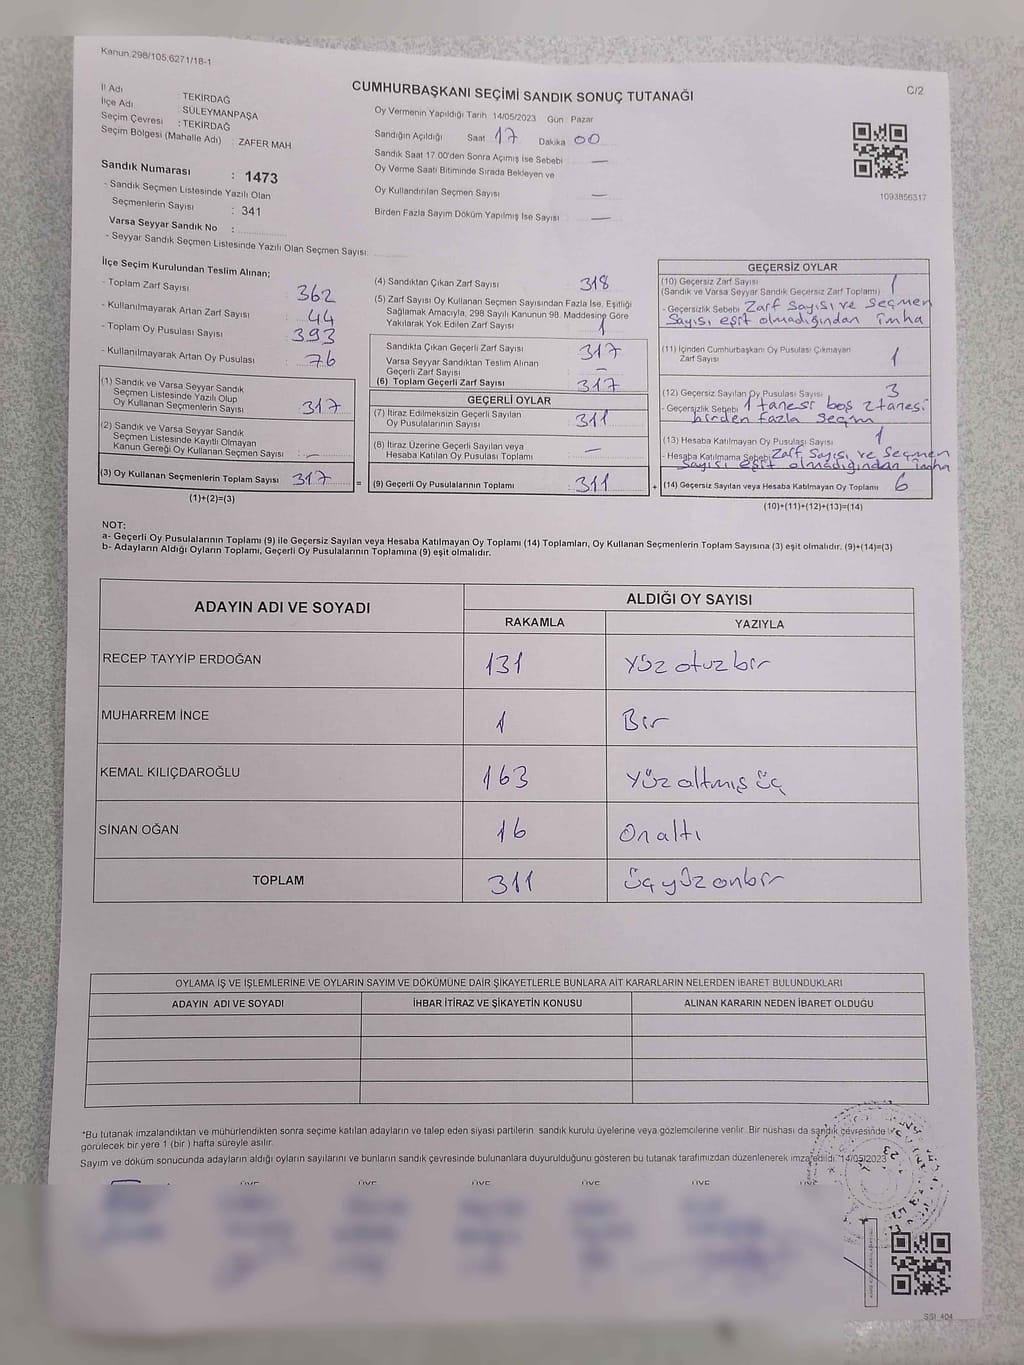 Kanun.298/105,6271/18-1
CUMHURBAŞKANI SEÇİMİ SANDIK SONUÇ TUTANAĞI
C/2
İl Adı : TEKİRDAĞ
İlçe Adı : SÜLEYMANPAŞA
Seçim Çevresi : TEKİRDAĞ
Seçim Bölgesi (Mahalle Adı) : ZAFER MAH
Sandık Numarası : 1473
- Sandık Seçmen Listesinde Yazılı Olan
Seçmenlerin Sayısı : 341
Varsa Seyyar Sandık No :
- Seyyar Sandık Seçmen Listesinde Yazılı Olan Seçmen Sayısı:
Oy Vermenin Yapıldığı Tarih 14/05/2023 Gün : Pazar
Sandığın Açıldığı Saat 17 Dakika 00
Sandık Saat 17.00'den Sonra Açımış İse Sebebi : —
Oy Verme Saati Bitiminde Sırada Bekleyen ve
Oy Kullandırılan Seçmen Sayısı : —
Birden Fazla Sayım Döküm Yapılmış İse Sayısı : —
1093856317
İlçe Seçim Kurulundan Teslim Alınan;
- Toplam Zarf Sayısı : 362
- Kullanılmayarak Artan Zarf Sayısı : 44
- Toplam Oy Pusulası Sayısı : 393
- Kullanılmayarak Artan Oy Pusulası : 76
(1) Sandık ve Varsa Seyyar Sandık
Seçmen Listesinde Yazılı Olup
Oy Kullanan Seçmenlerin Sayısı : 317
(2) Sandık ve Varsa Seyyar Sandık
Seçmen Listesinde Kayıtlı Olmayan
Kanun Gereği Oy Kullanan Seçmen Sayısı : —
(3) Oy Kullanan Seçmenlerin Toplam Sayısı : 317 =
(1)+(2)=(3)
(4) Sandıktan Çıkan Zarf Sayısı : 318
(5) Zarf Sayısı Oy Kullanan Seçmen Sayısından Fazla İse, Eşitliği
Sağlamak Amacıyla, 298 Sayılı Kanunun 98. Maddesine Göre
Yakılarak Yok Edilen Zarf Sayısı : 1
Sandıkta Çıkan Geçerli Zarf Sayısı : 317
Varsa Seyyar Sandıktan Teslim Alınan
Geçerli Zarf Sayısı : —
(6) Toplam Geçerli Zarf Sayısı : 317
GEÇERLİ OYLAR
(7) İtiraz Edilmeksizin Geçerli Sayılan
Oy Pusulalarının Sayısı : 311
(8) İtiraz Üzerine Geçerli Sayılan veya
Hesaba Katılan Oy Pusulası Toplamı : —
(9) Geçerli Oy Pusulalarının Toplamı : 311 +
GEÇERSİZ OYLAR
(10) Geçersiz Zarf Sayısı
(Sandık ve Varsa Seyyar Sandık Geçersiz Zarf Toplamı) : 1
- Geçersizlik Sebebi : Zarf Sayısı ve Seçmen
Sayısı eşit olmadığından imha
(11) İçinden Cumhurbaşkanı Oy Pusulası Çıkmayan
Zarf Sayısı 1
(12) Geçersiz Sayılan Oy Pusulası Sayısı : 3
- Geçersizlik Sebebi : 1 tanesi boş 2 tanesi
birden fazla seçim
(13) Hesaba Katılmayan Oy Pusulası Sayısı : 1
- Hesaba Katılmama Sebebi : Zarf Sayısı ve Seçmen
Sayısı eşit olmadığından imha
(14) Geçersiz Sayılan veya Hesaba Katılmayan Oy Toplamı : 6
(10)+(11)+(12)+(13)=(14)
NOT:
a- Geçerli Oy Pusulalarının Toplamı (9) ile Geçersiz Sayılan veya Hesaba Katılmayan Oy Toplamı (14) Toplamları, Oy Kullanan Seçmenlerin Toplam Sayısına (3) eşit olmalıdır. (9)+(14)=(3)
b- Adayların Aldığı Oyların Toplamı, Geçerli Oy Pusulalarının Toplamına (9) eşit olmalıdır.
ADAYIN ADI VE SOYADI
ALDIĞI OY SAYISI
RAKAMLA YAZIYLA
RECEP TAYYİP ERDOĞAN 131 Yüz otuz bir
MUHARREM İNCE 1 Bir
KEMAL KILIÇDAROĞLU 163 Yüz altmış üç
SİNAN OĞAN 16 On altı
TOPLAM 311 üç yüz on bir
OYLAMA İŞ VE İŞLEMLERİNE VE OYLARIN SAYIM VE DÖKÜMÜNE DAİR ŞİKAYETLERLE BUNLARA AİT KARARLARIN NELERDEN İBARET BULUNDUKLARI
ADAYIN ADI VE SOYADI İHBAR İTİRAZ VE ŞİKAYETİN KONUSU ALINAN KARARIN NEDEN İBARET OLDUĞU
*Bu tutanak imzalandıktan ve mühürlendikten sonra seçime katılan adayların ve talep eden siyasi partilerin sandık kurulu üyelerine veya gözlemcilerine verilir. Bir nüshası da sandık çevresinde
görülecek bir yere 1 (bir ) hafta süreyle asılır.
Sayım ve döküm sonucunda adayların aldığı oyların sayılarını ve bunların sandık çevresinde bulunanlara duyurulduğunu gösteren bu tutanak tarafımızdan düzenlenerek imza edildi. 14/05/2023
ÜYE ÜYE ÜYE ÜYE ÜYE
SSI_404